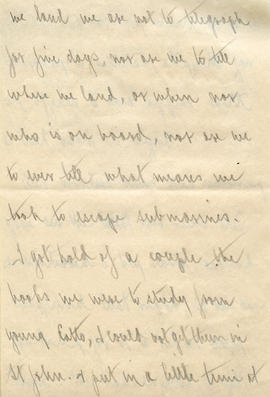 we land we are not to telegraph
for five days, nor are we to tell
where we land, or when nor
who is on board, nor are we
to ever tell what means we
took to escape submarines.
I got hold of a couple the
books we were to study from
young Cotto, & could not get them in
St John. & put in a little time at